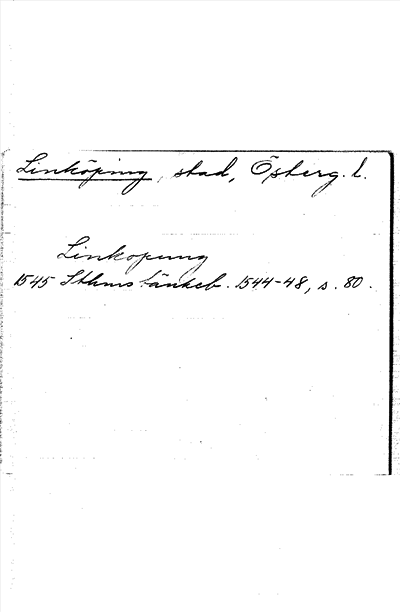 Linköping, stad, Österg. l.
Linkopung
1545 Sthms tänkeb. 1544-48, s. 80.